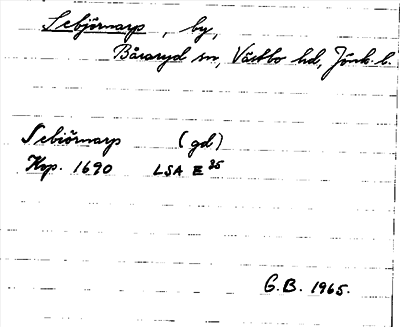 Sebjörnarp, by,
Båraryd sn, Västbo hd, Jönk. l.
Sebiörnarp (gd)
Kop. 1690 LSA E 35
G.B. 1965.